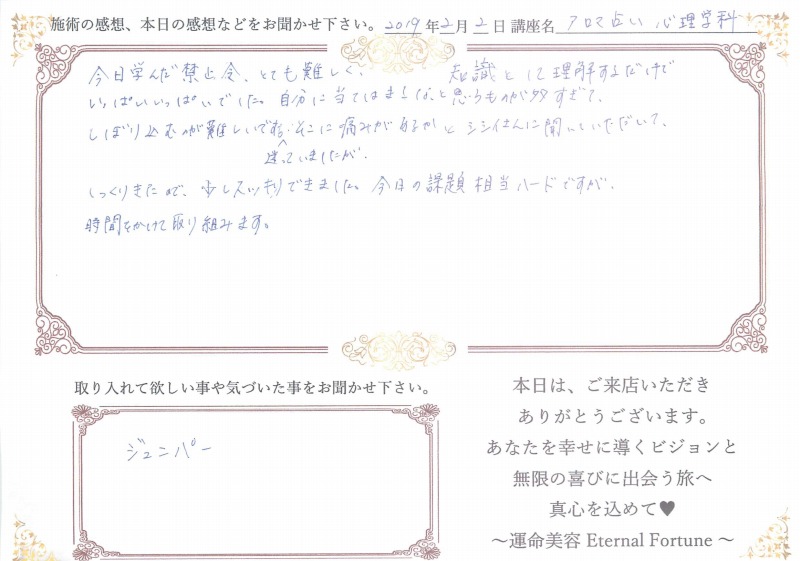 施術の感想、本日の感想などをお聞かせ下さい。2019年2月2日 講座名 アロマ占い 心理学科
今日学んだ禁止令、とても難しく、 知識として理解するだけで
いっぱいいっぱいでした。自分に当てはまるなと思うものが多すぎて、
しぼり込むのが難しいですね。そこに痛みがあるかとシシィさんに聞いていただいて、
迷っていましたが、
しっくりきたので、少しスッキリできました。今日の課題 相当ハードですが、
時間をかけて取り組みます。
取り入れて欲しい事や気づいた事をお聞かせ下さい。
ジュニパー
本日は、ご来店いただき
ありがとうございます。
あなたを幸せに導くビジョンと
無限の喜びに出会う旅へ
真心を込めて♥
〜運命美容 Eternal Fortune 〜